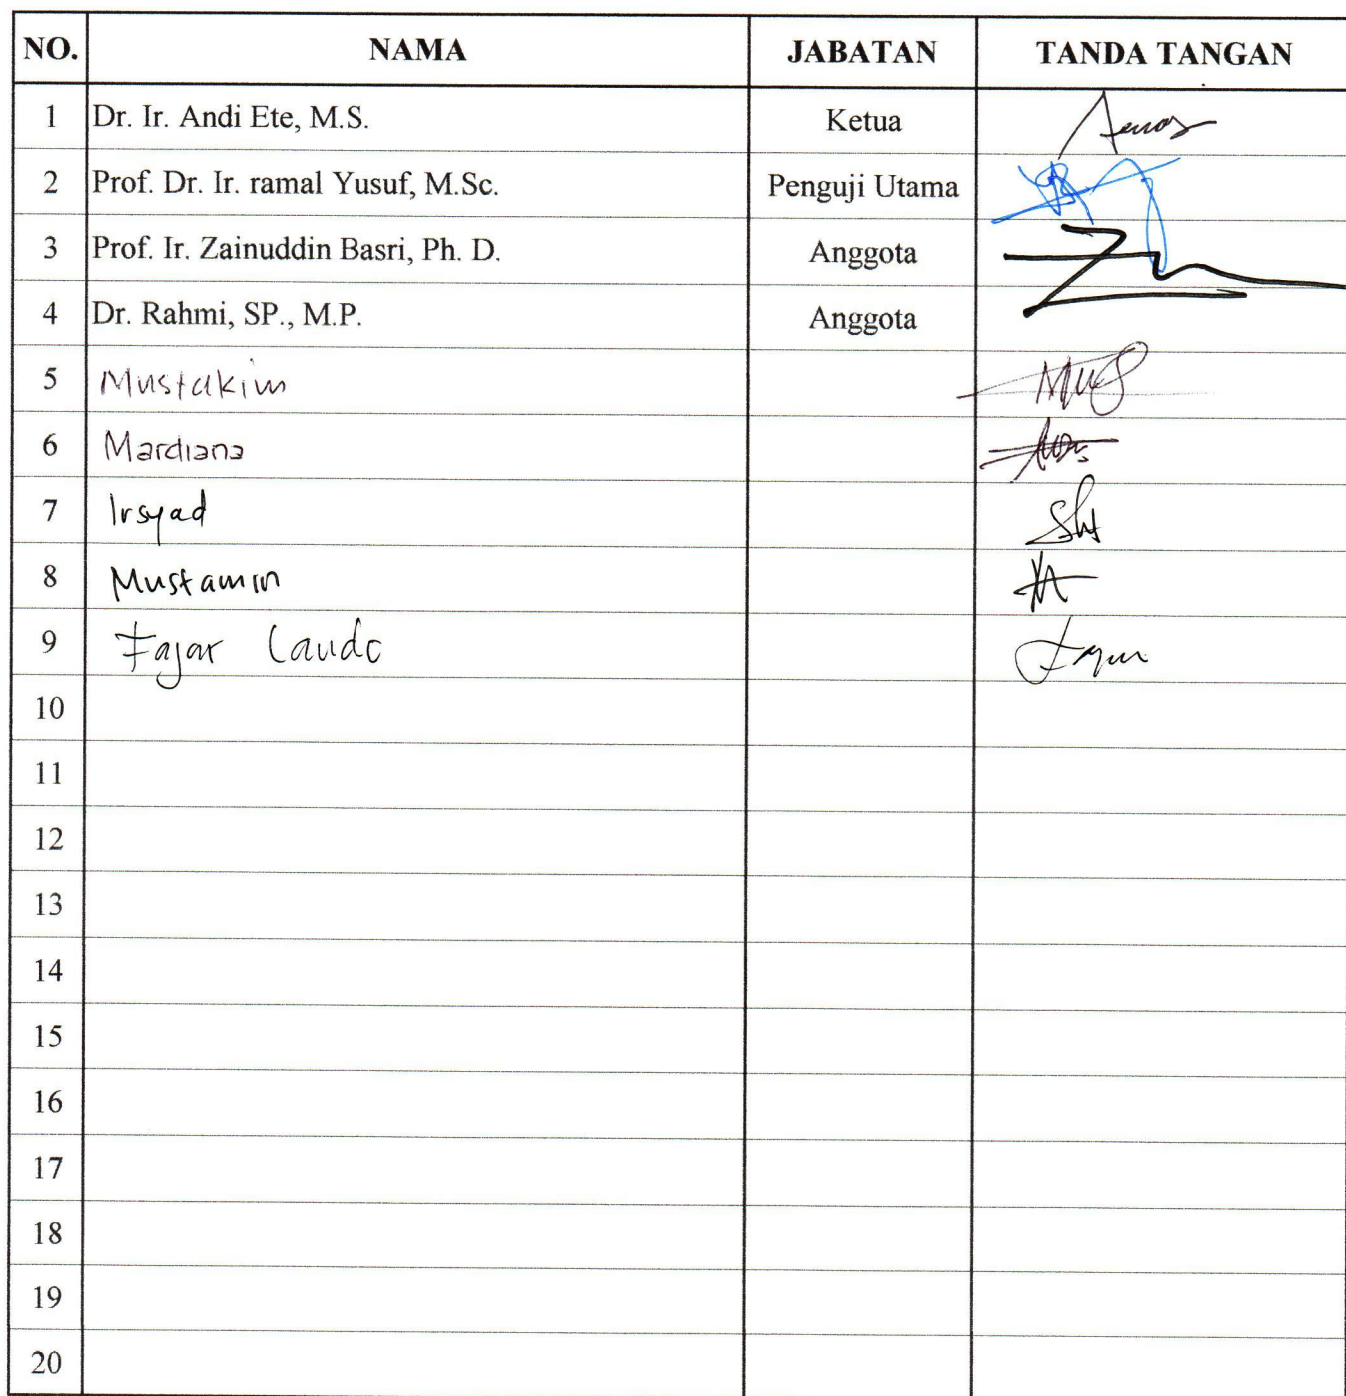 NO. NAMA JABATAN TANDA TANGAN
1 Dr. Ir. Andi Ete, M.S. Ketua
2 Prof. Dr. Ir. ramal Yusuf, M.Sc. Penguji Utama
3 Prof. Ir. Zainuddin Basri, Ph. D. Anggota
4 Dr. Rahmi, SP., M.P. Anggota
5 Mustakim
6 Mardiana
7 Irsyad
8 Mustamin
9 Fajar
10
11
12
13
14
15
16
17
18
19
20